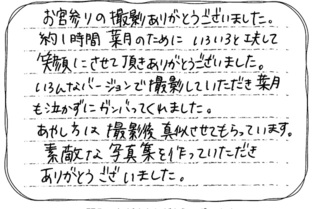 お宮参りの撮影ありがとうございました。
約1時間葉月のためにいろいろと工夫して
笑顔にさせて頂きありがとうございました。
いろんなバージョンで撮影していただき葉月
も泣かずにガンバってくれました。
あやしちは撮影後真似させてもらっています。
素敵な写真集を作っていただき
ありがとうございました。